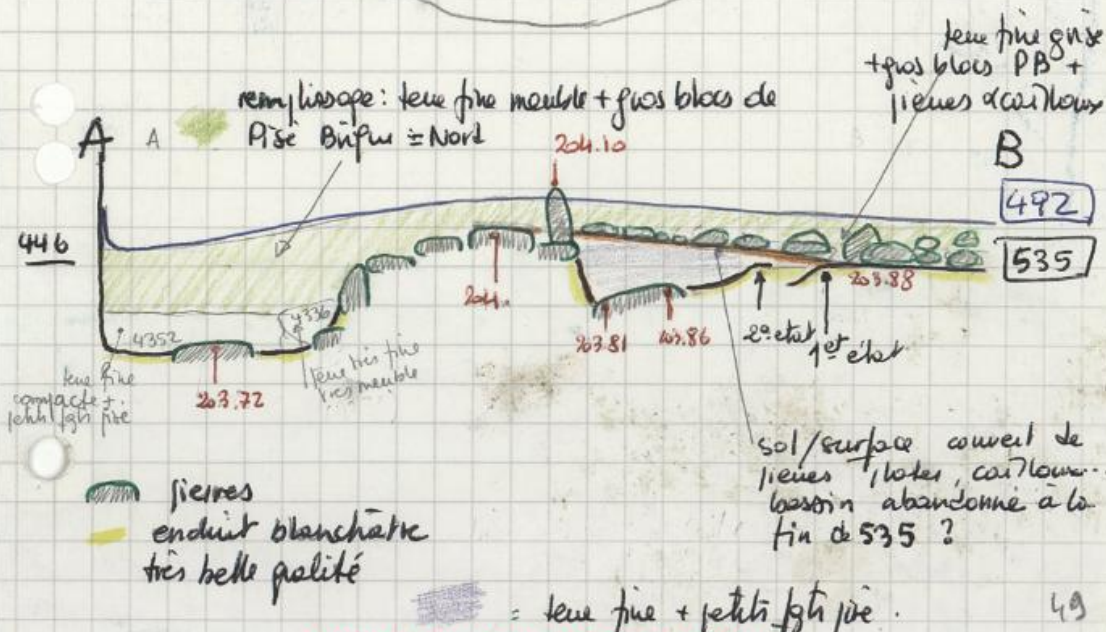 terre fine grise
+gros blocs PB +
pierres & cailloux
remplissage: terre fine meuble + gros blocs de
Pisé Brûlé ≡ Nord
A
A
204.10
B
492
446
535
204.
203.88
4336
4352
203.81
203.86
2e état
1er état
terre fine
compacte +
petits fgts pisé
203.72
terre très fine
très meuble
sol/surface couvert de
pierres plates, cailloux..
bassin abandonné à la
fin de 535 ?
pierres
enduit blanchâtre
très belle qualité
= terre fine + petits fgts pisé.
49